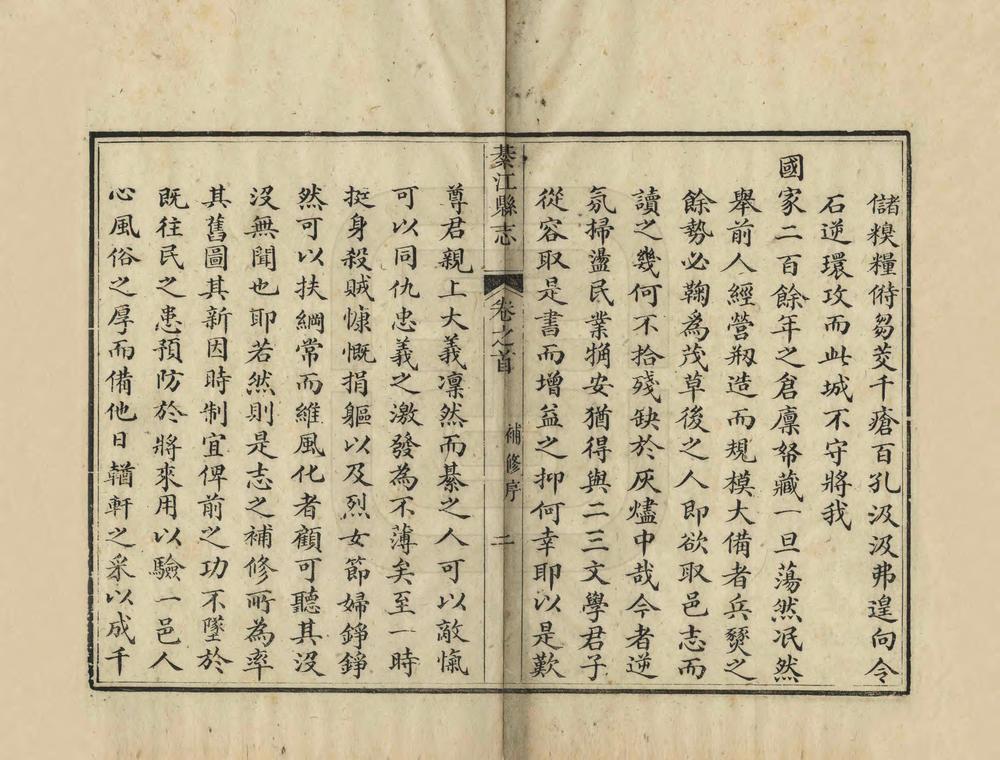 儲糗糧偫芻茭千瘡百孔汲汲弗遑向令
石逆環攻而此城不守將我
國家二百餘年之倉廩帑藏一旦蕩然泯然
舉前人經營刱造而規模大備者兵燹之
餘勢必鞠為茂草後之人即欲取邑志而
讀之幾何不拾殘缺於灰燼中哉今者逆
氛掃盪民業犕安猶得與二三文學君子
從容取是書而增益之抑何幸耶以是歎
綦江縣志
卷之首
補修序
二
尊君親上大義凜然而綦之人可以敵愾
可以同仇忠義之激發為不薄矣至一時
挺身殺賊慷慨捐軀以及烈女節婦錚錚
然可以扶綱常而維風化者顧可聽其沒
沒無聞也耶若然則是志之補修所為率
其舊圖其新因時制宜俾前之功不墜於
既往民之患預防於將來用以驗一邑人
心風俗之厚而備他日輶軒之采以成千